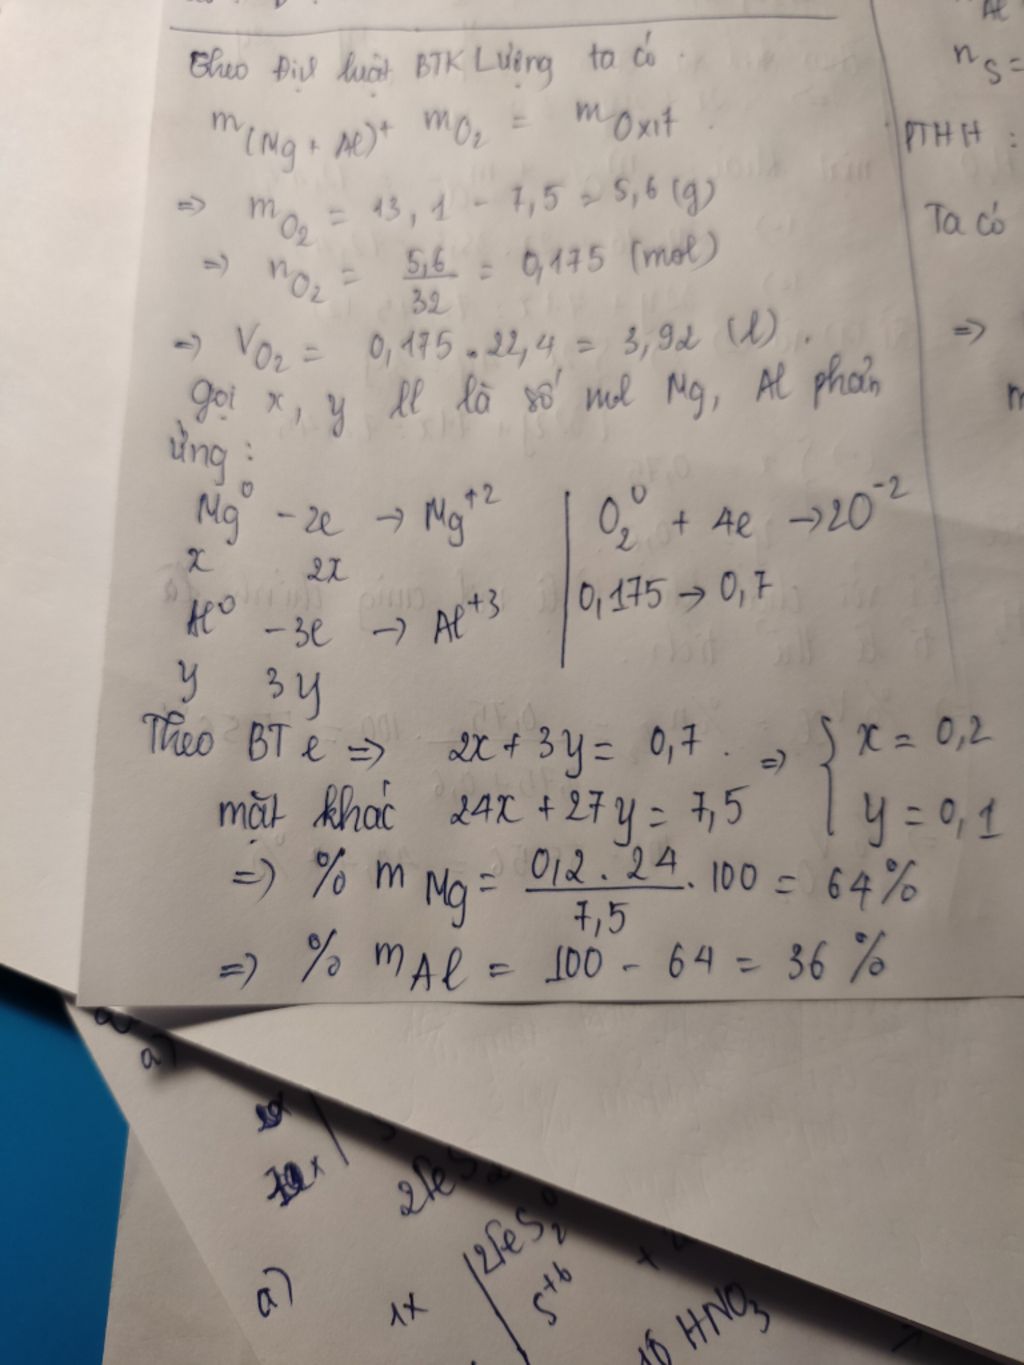 Theo Định luật BTK Lượng ta có
m(Mg + Al) + mO2 = mOxit.
=> mO2 = 13,1 - 7,5 = 5,6 (g)
=> nO2 = 5,6/32 = 0,175 (mol)
=> VO2 = 0,175.22,4 = 3,92 (l).
gọi x, y ll là số mol Mg, Al phản
ứng:
Mg⁰ - 2e → Mg⁺²
x 2x
Al⁰ - 3e → Al⁺³
y 3y
O2⁰ + 4e → 2O⁻²
0,175 → 0,7
Theo BT e => 2x + 3y = 0,7. => { x = 0,2
mặt khác 24x + 27y = 7,5 y = 0,1
=> % mMg = 0,2.24/7,5 . 100 = 64%
=> % mAl = 100 - 64 = 36 %
Al
nS =
PTHH :
Ta có
=>
m
a)
2FeS2
a)
1x
2FeS2⁰
S⁺⁶
+
HNO3